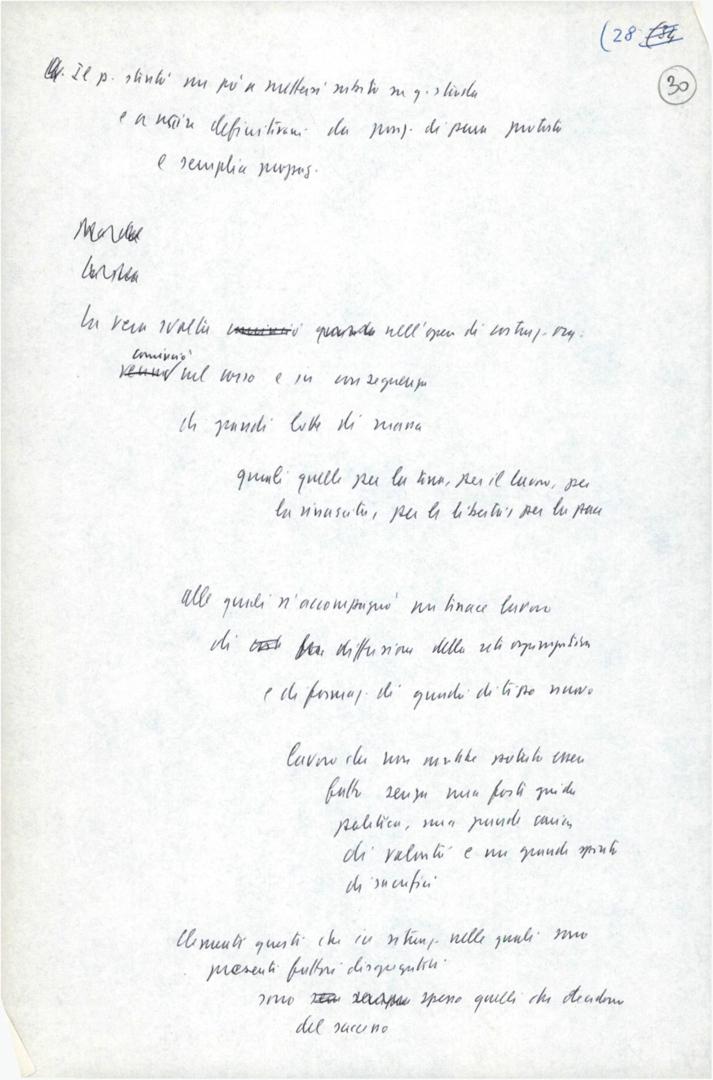 (28
30
Il p. stentò un po' a mettersi subito su q. strada
e a uscire definitivam. da posiz. di pura protesta
e semplice propag.
La vera svolta nell'opera di costruz. org.
cominciò
nel corso e in conseguenza
di grandi lotte di massa
quali quelle per la terra, per il lavoro, per
la rinascita, per le libertà, per la pace
alle quali s'accompagnò un tenace lavoro
di diffusione della rete organizzativa
e di formaz. di quadri di tipo nuovo
lavoro che non sarebbe potuto essere
fatto senza una forte guida
politica, una grande carica
di volontà e un grande spirito
di sacrificio
Elementi questi che in situaz. nelle quali sono
presenti fattori disgregativi
sono spesso quelli che decidono
del successo